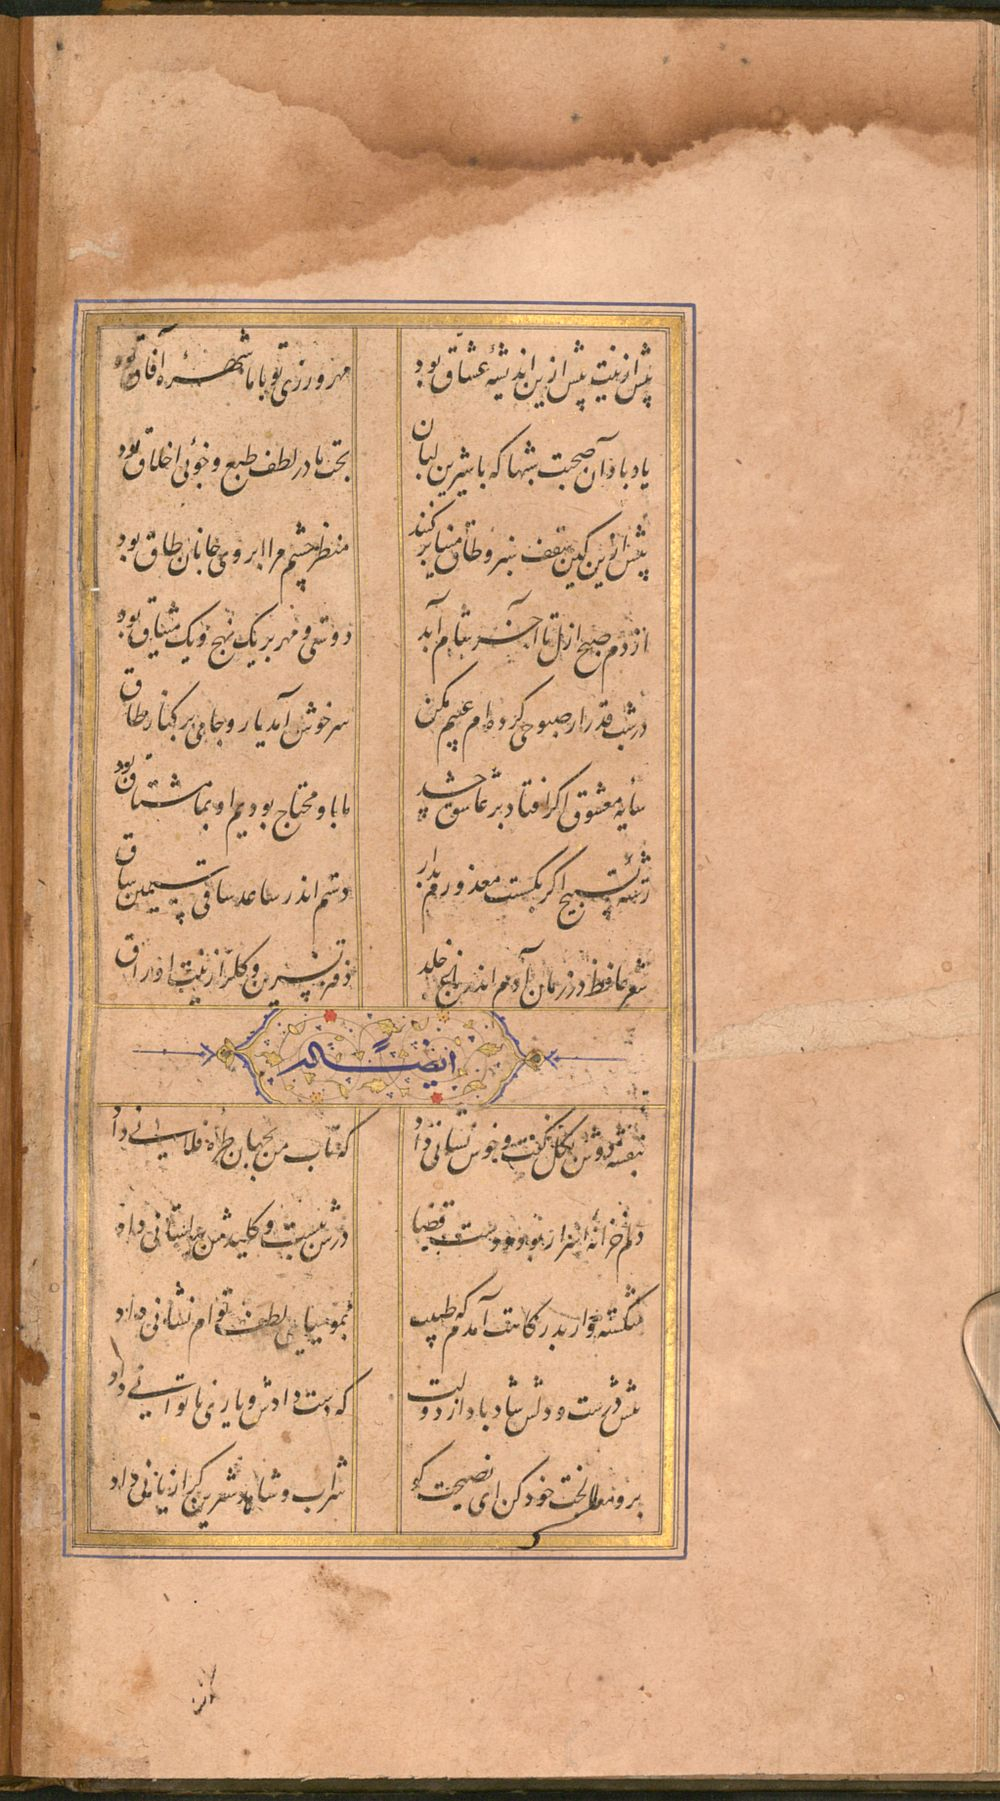 پیش ازینت پیش ازین اندیشهٔ عشاق بود    مهرورزی تو با ما شهرهٔ آفاق بود
یاد باد آن صحبت شبها که با شیرین لبان    بحث ما در لطف طبع و خوبی اخلاق بود
پیش ازین کین سقف سبز و طاق مینا برکنند    منظر چشم مرا ابروی جانان طاق بود
از دم صبح ازل تا آخر شام ابد    دوستی و مهر بر یک نهج و یک میثاق بود
در شب قدر ار صبوحی کرده‌ام عیبم مکن    سرخوش آمد یار و جامی بر کنار طاق
سایه معشوق اگر افتاد بر عاشق چه شد    ما باو محتاج بودیم او بما مشتاق بود
رشتهٔ تسبیح اگر بگسست معذورم بدار    دستم اندر ساعد ساقی سیمین ساق
شعر حافظ در زمان آدم اندر باغ خلد    دفتر نسرین و گل را زینت اوراق
ایضاً له
بنفشه دوش بگل گفت و خوش نشانی داد    که تاب من بجهان طرهٔ فلانی داد
دلم خزانهٔ اسرار بود و دست قضا    درش ببست و کلیدش بدلستانی داد
شکسته وار بدرگاهت آمدم که طبیب    بمومیایی لطف توام نشانی داد
تنش درست و دلش شاد باد از دولت    که دست دادش و یاری ناتوانی داد
برو معالجت خود کن ای نصیحت گو    شراب و شاهد شیرین کرا زیانی داد